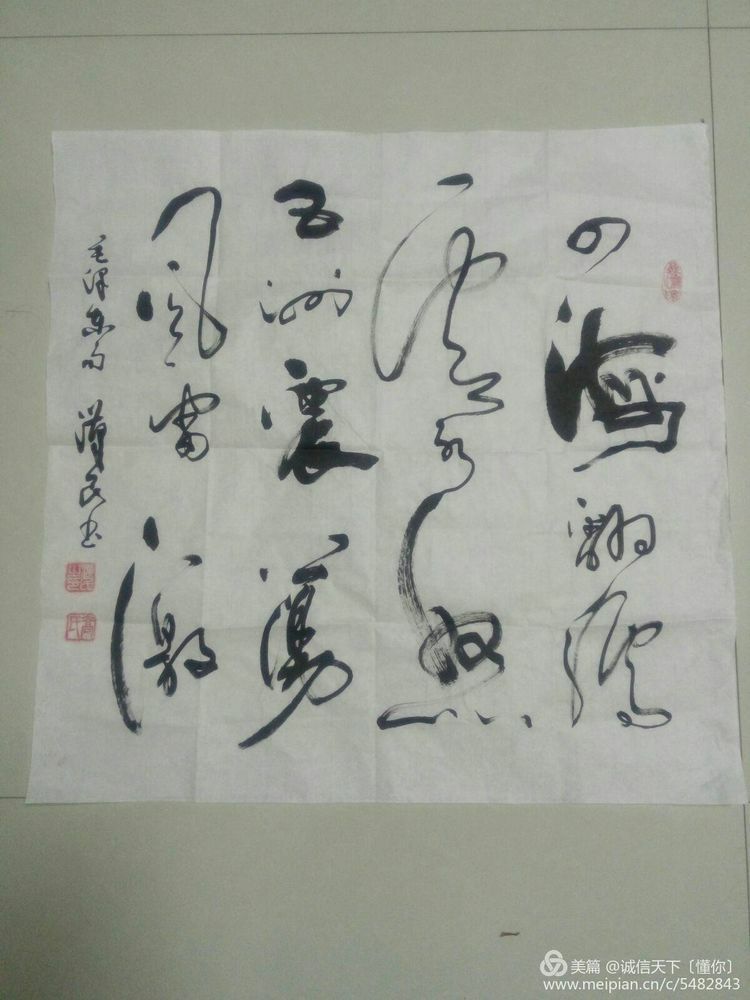 四海翻腾
云水怒
五洲震荡
风雷激
毛泽东句 汉民书
美篇 @诚信天下〔懂你〕
www.meipian.cn/c/5482843